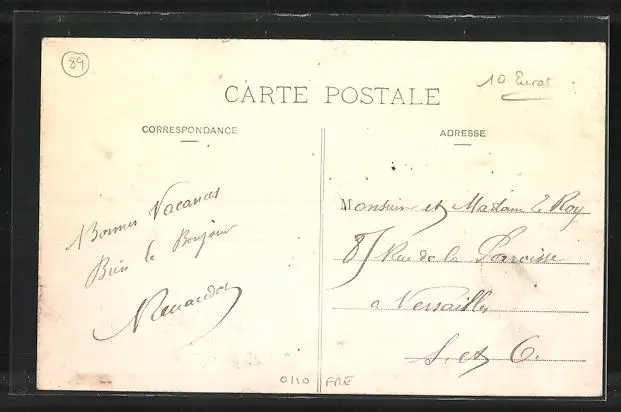 89
10 Euros
CARTE POSTALE
CORRESPONDANCE
ADRESSE
Bonnes Vacances
Bien le Bonjour
Monsieur et Madam E Roy
Rue de la Paroisse
a Versailles
S. et O.
0110 FRE